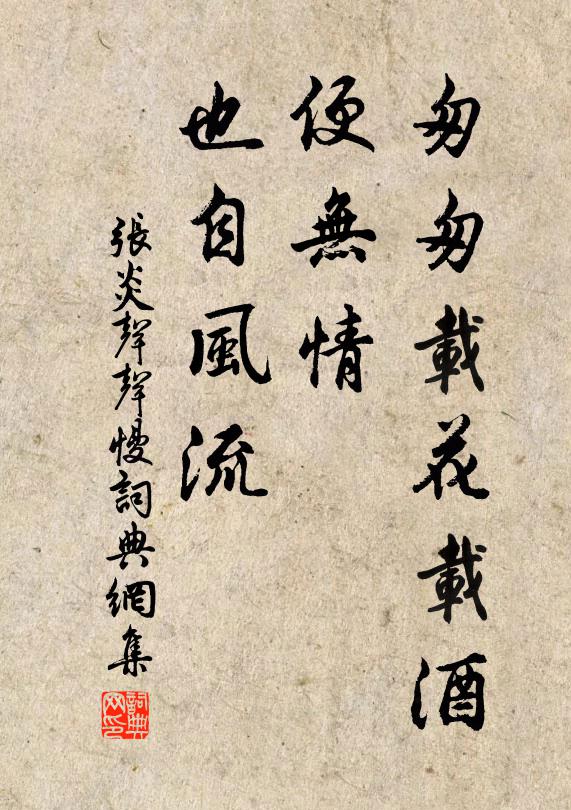 匆匆載花載酒
便無情
也自風流
張炎聲聲慢詞典網集
詞典网印